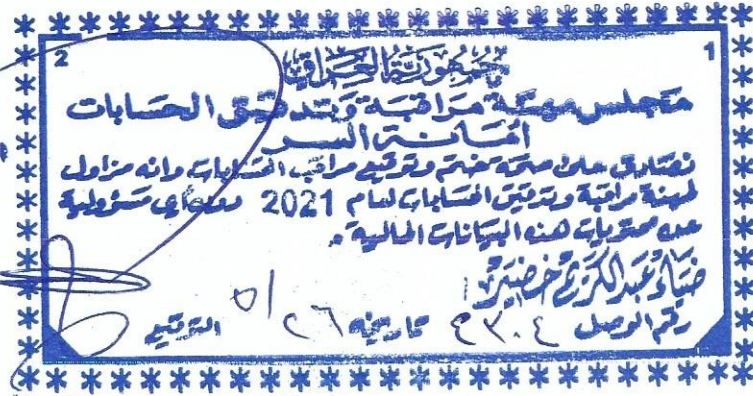 2 1
جمهورية العراق
مجلس مهنة مراقبة وتدقيق الحسابات
امانة السر
نصادق على صحة ختم وتوقيع مراقب الحسابات وانه مزاول
لمهنة مراقبة وتدقيق الحسابات لعام 2021 دون اي مسؤولية
عن محتويات هذه البيانات المالية.
ضياء عبدالكريم خضير
رقم الوصل ٤٣٠٤ تاريخه ٥/٢٦ التوقيع